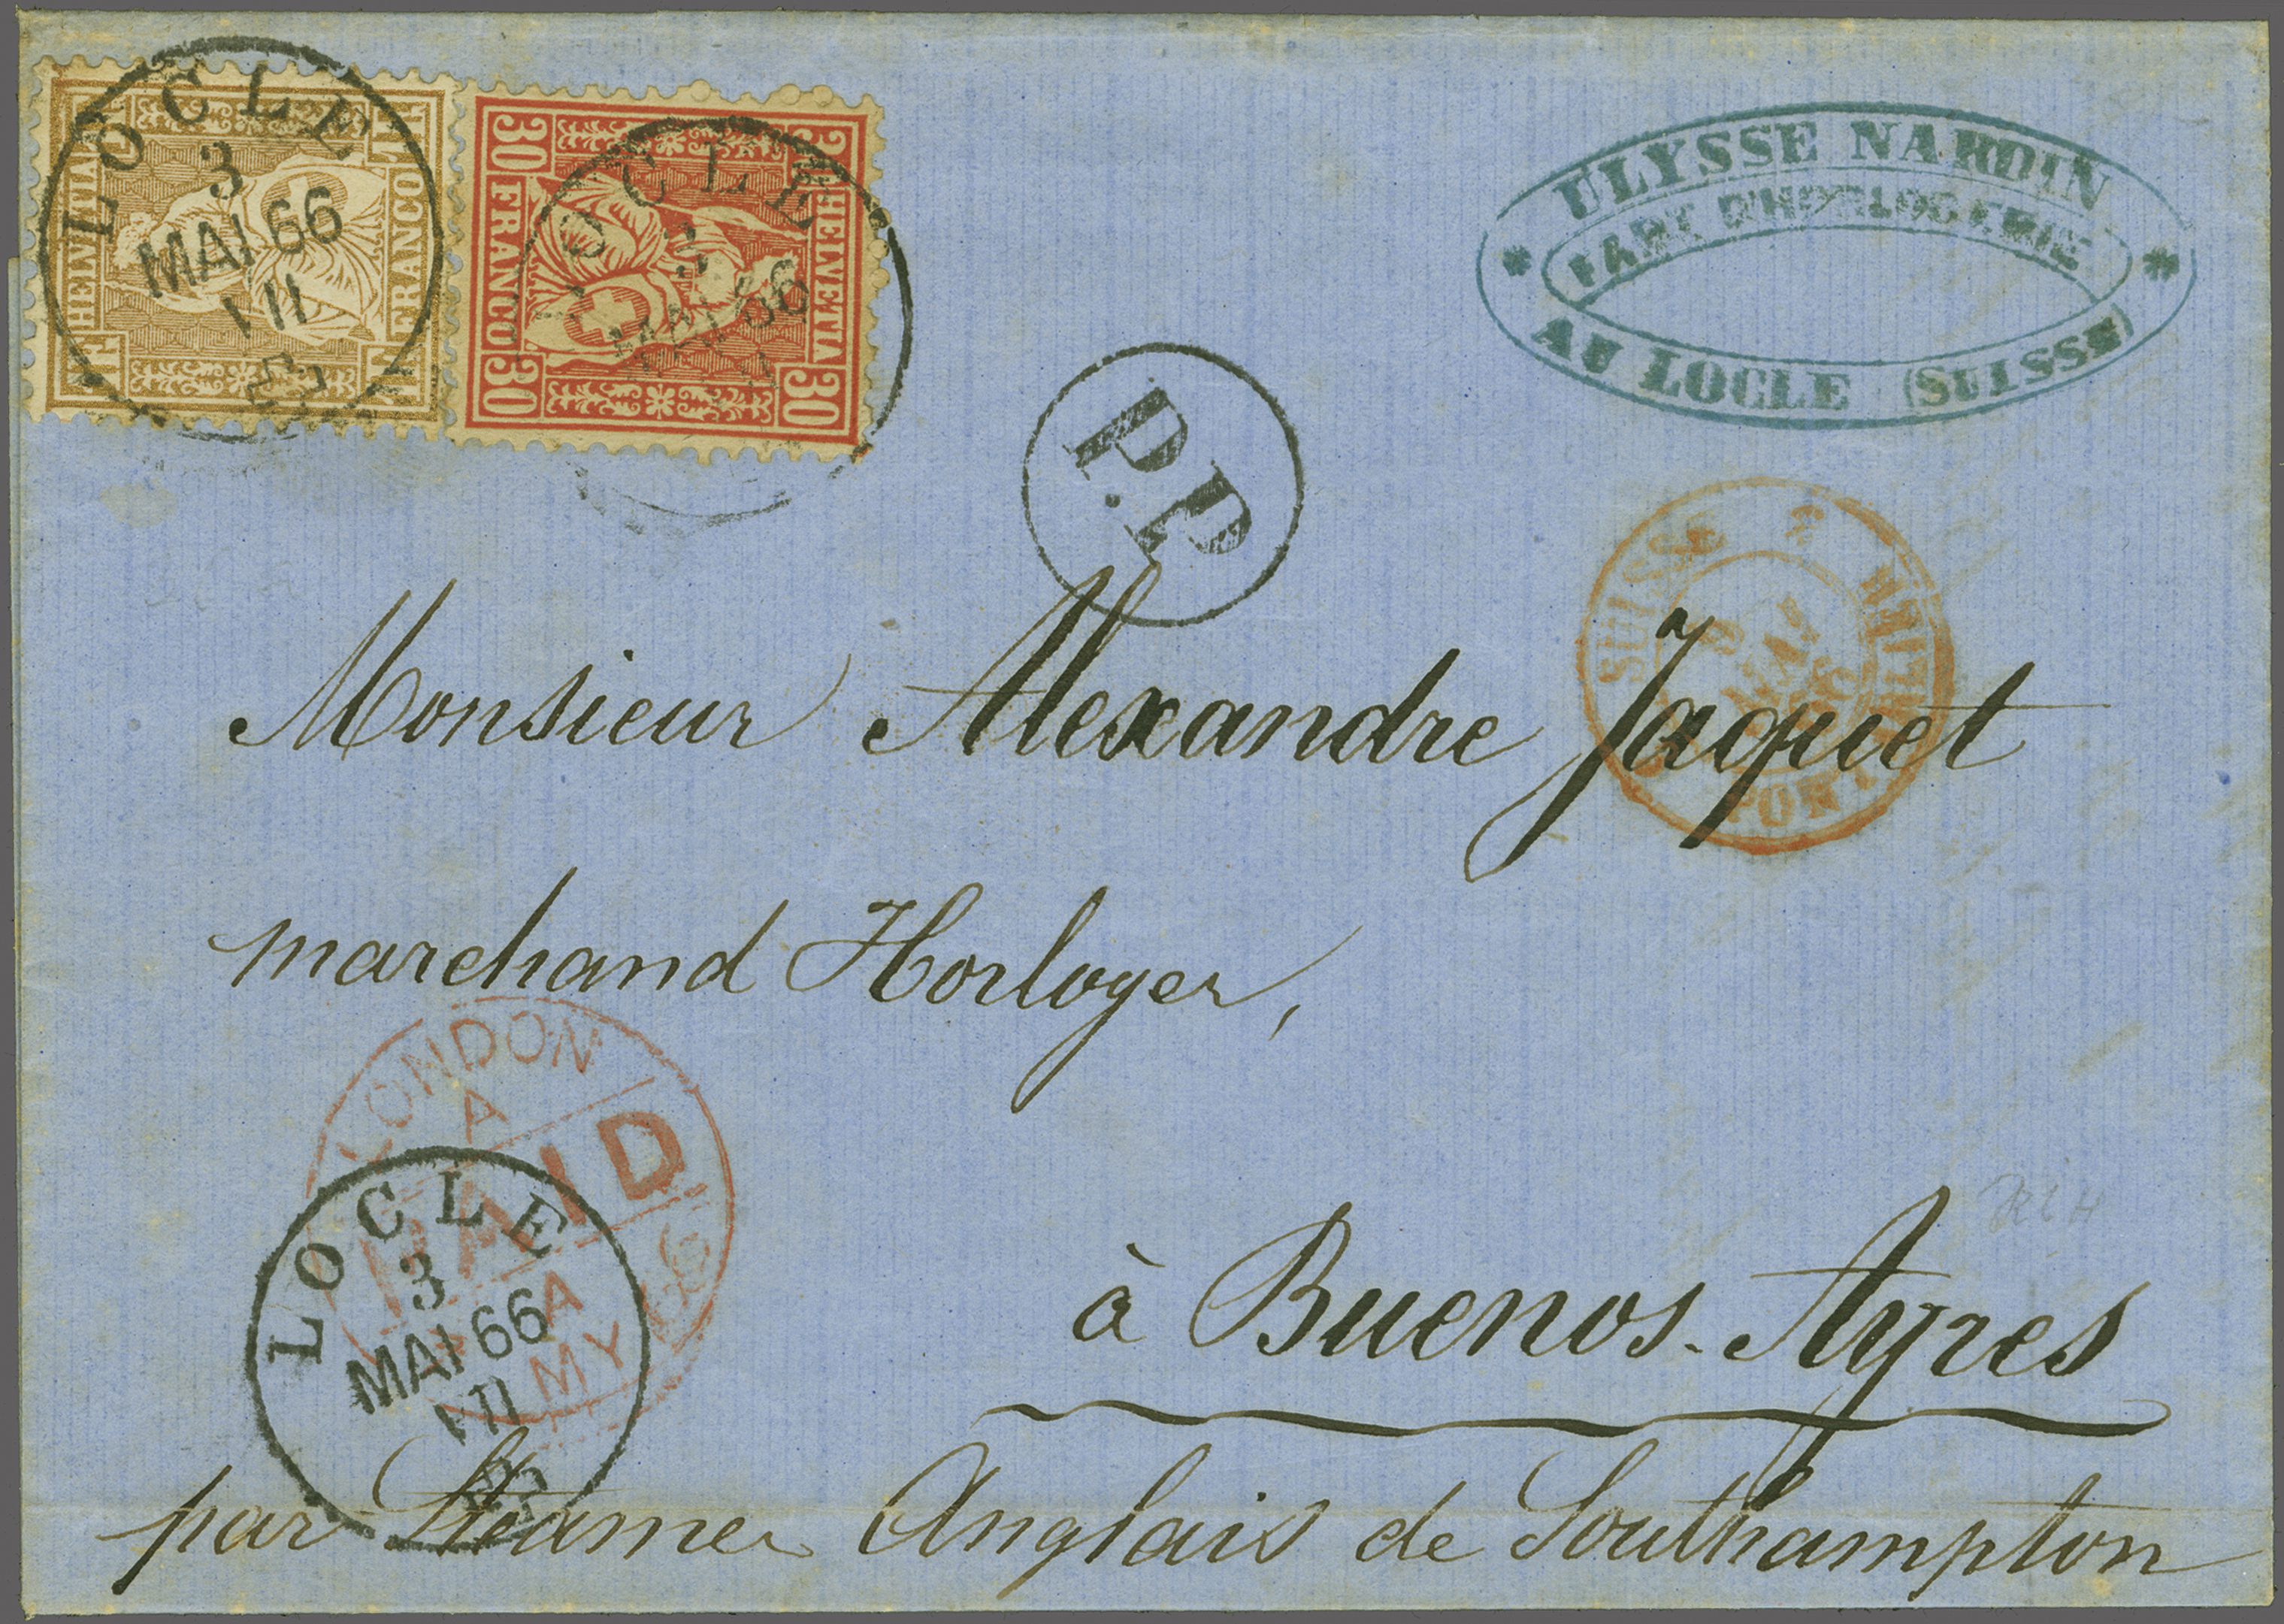 LOCLE
3
MAI 66
VII
HELVETIA
FRANCO
1 F
LOCLE
3
MAI 66
30 HELVETIA 30
30 FRANCO 30
ULYSSE NARDIN
FABT D'HORLOGERIE
AU LOCLE (SUISSE)
P.P
SUISSE
MAI
Monsieur Alexandre Jaquet
marchand Horloger,
LONDON
A
PAID
MY
LOCLE
3
MAI 66
VII
à Buenos-Ayres
par Steamer Anglais de Southampton